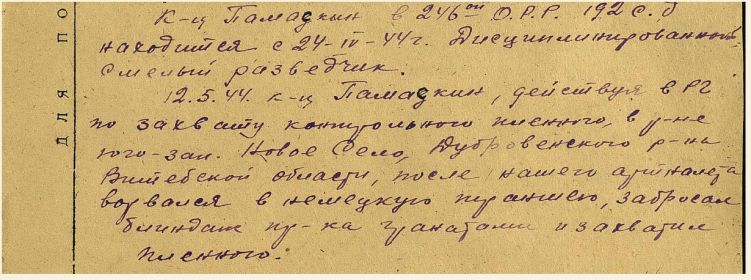 К-ц Памадкин в 246ой О.Р.Р. 192 с.д
находится с 24-IV-44г. Дисциплинированной
смелый разведчик.
12.5.44. к-ц Памадкин, действуя в РГ
по захвату контрольного пленного, в р-не
юго-зап. Новое Село, Дубровенского р-на
Витебской области, после нашего артналета
ворвался в немецкую траншею, забросал
блиндаж пр-ка гранатами и захватил
пленного.
ДЛЯ ПО